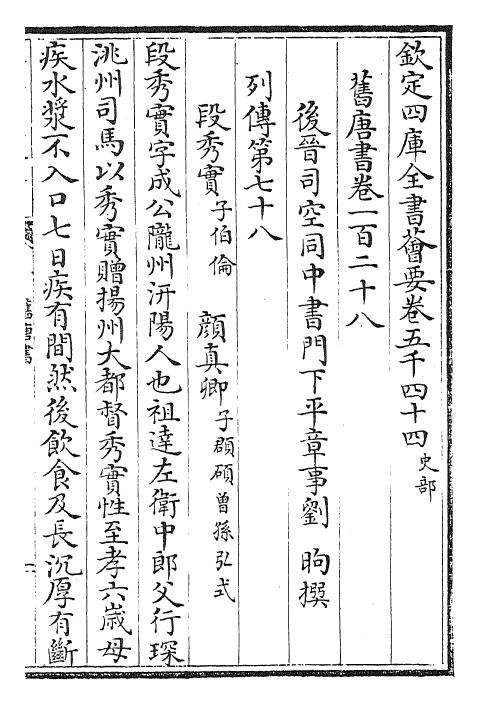 欽定四庫全書薈要卷五千四十四 史部
舊唐書卷一百二十八
後晉司空同中書門下平章事劉 昫撰
列傳第七十八
段秀實 子伯倫 顔真卿 子頵碩曾孫弘式
段秀實字成公隴州汧陽人也祖達左衛中郎父行琛
洮州司馬以秀實贈揚州大都督秀實性至孝六歲母
疾水漿不入口七日疾有間然後飲食及長沉厚有斷
舊唐書